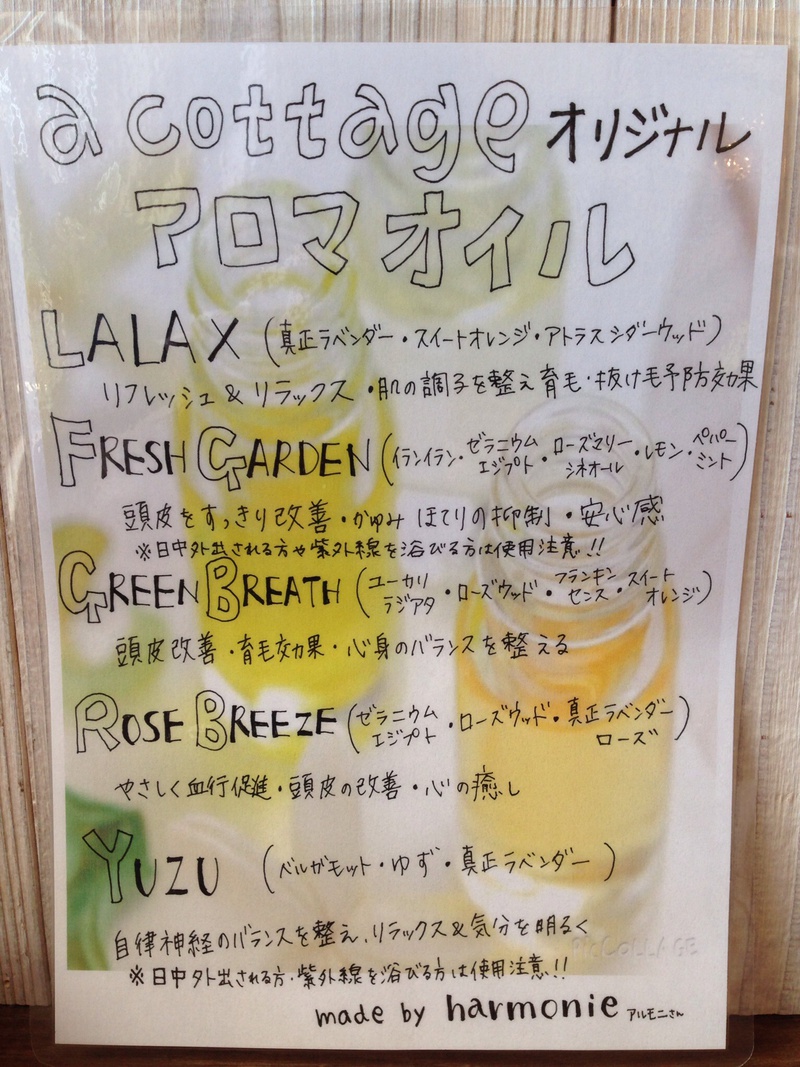 a cottage オリジナル
アロマオイル
LALAX (真正ラベンダー・スイートオレンジ・アトラスシダーウッド)
リフレッシュ & リラックス・肌の調子を整え育毛・抜け毛予防効果
FRESH GARDEN (イランイラン・ゼラニウムエジプト・ローズマリーシネオール・レモン・ペパーミント)
頭皮をすっきり改善・かゆみ ほてりの抑制・安心感
※日中外出される方や紫外線を浴びる方は使用注意!!
GREEN BREATH (ユーカリラジアタ・ローズウッド・フランキンセンス・スイートオレンジ)
頭皮改善・育毛効果・心身のバランスを整える
ROSE BREEZE (ゼラニウムエジプト・ローズウッド・真正ラベンダーローズ)
やさしく血行促進・頭皮の改善・心の癒し
YUZU (ベルガモット・ゆず・真正ラベンダー)
自律神経のバランスを整え、リラックス&気分を明るく
※日中外出される方・紫外線を浴びる方は使用注意!!
made by harmonie アルモニさん